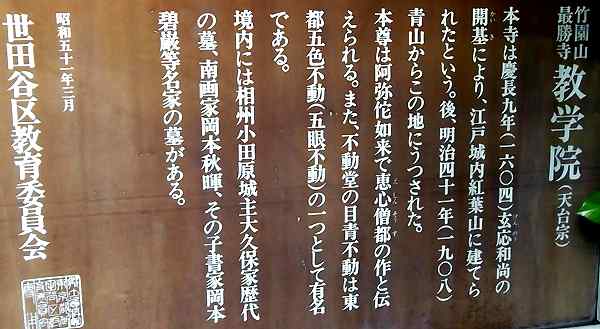 竹園山
最勝寺
教学院(天台宗)
本寺は慶長九年(一六〇四)玄応和尚の
開基により、江戸城内紅葉山に建てら
れたという。後、明治四十一年(一九〇八)
青山からこの地にうつされた。
本尊は阿弥佗如来で恵心僧都の作と伝
えられる。また、不動堂の目青不動は東
都五色不動(五眼不動)の一つとして有名
である。
境内には相州小田原城主大久保家歴代
の墓、南画家岡本秋暉、その子書家岡本
碧巌等名家の墓がある。
昭和五十一年三月
世田谷区教育委員会